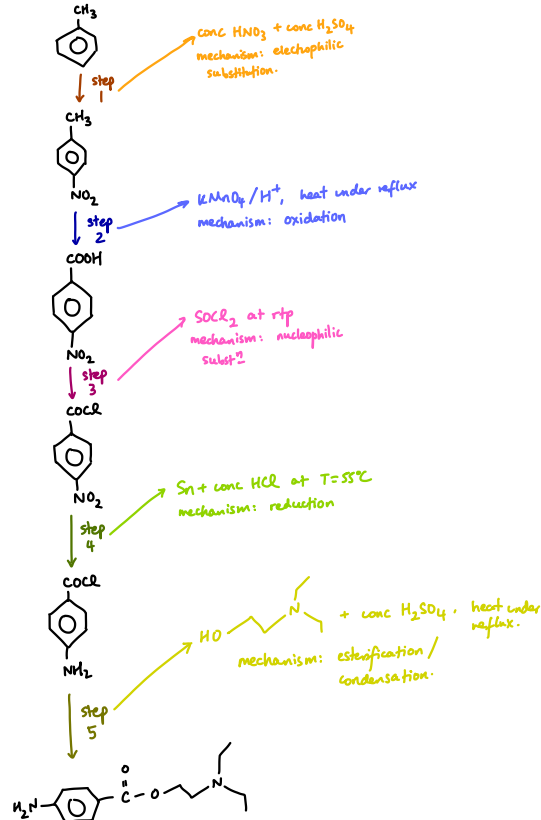 CH₃
conc HNO₃ + conc H₂SO₄
mechanism: electrophilic
substitution.
step
1
CH₃
NO₂
step
2
KMnO₄/H⁺, heat under reflux
mechanism: oxidation
COOH
NO₂
step
3
SOCl₂ at rtp
mechanism: nucleophilic
substⁿ
COCl
NO₂
step
4
Sn + conc HCl at T=55°C
mechanism: reduction
COCl
NH₂
step
5
HO N + conc H₂SO₄, heat under
reflux.
mechanism: esterification/
condensation.
O
H₂N C O N